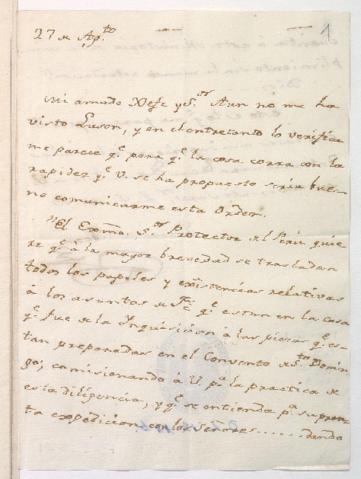 1
27 de Ag.to
Mi amado Xefe y S.or Aun no me ha
visto Lason, y en el entretanto lo verifica
me parece q.e para q.e la cosa corra con la
rapidez q.e V. se ha propuesto sería bue-
no comunicarme esta Orden.
"El Exmo. S.or Protector del Perú quie-
re q.e á la mayor brevedad se trasladen
todos los papeles y existencias relativas
á los asuntos de q.e estan en la casa
q.e fue de la Ynquisicion á las piesas q.e es-
tan preparadas en el Convento de S.to Domin-
go; comisionando á U. p.a la practica de
esta diligencia, y q.e se entienda p.a su pron-
ta expedicion con los Señores...... dando